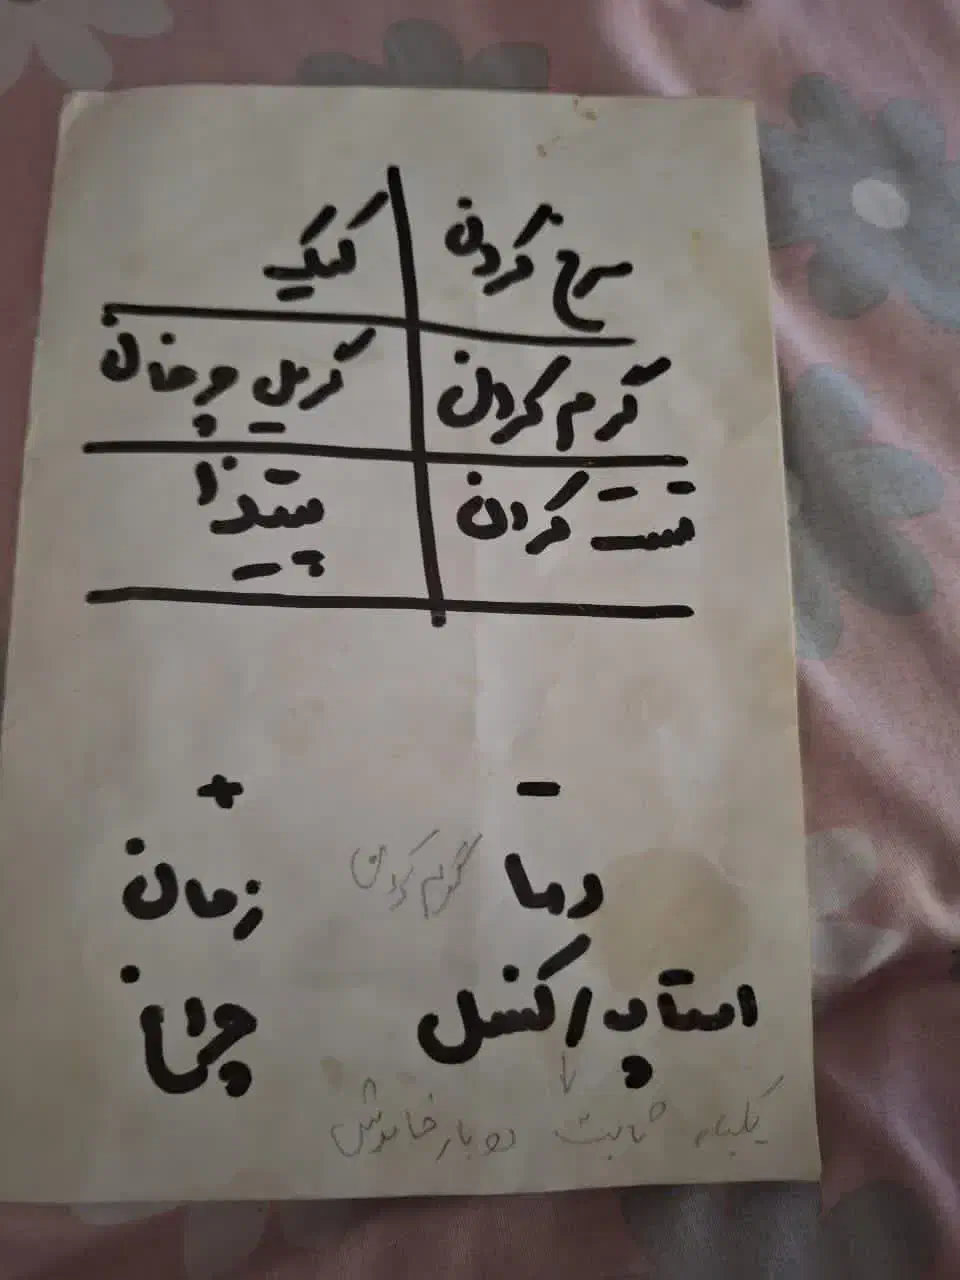 سرخ کردن کیک
گرم کردن گریل چرخان
تست کردن پیتزا
- +
دما گرم کردن زمان
استاپ / کنسل چراغ
یکبار ثابت دوبار خاموش